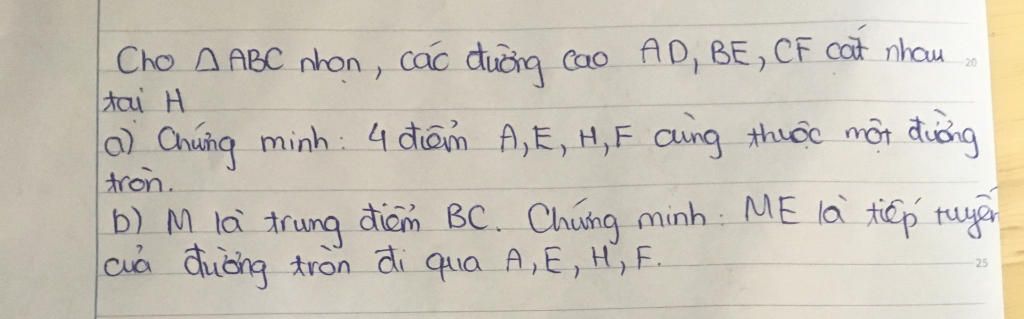 Cho Δ ABC nhọn, các đường cao AD, BE, CF cắt nhau
20
tại H
a) Chứng minh: 4 điểm A, E, H, F cùng thuộc một đường
tròn.
b) M là trung điểm BC. Chứng minh: ME là tiếp tuyến
của đường tròn đi qua A, E, H, F.
25